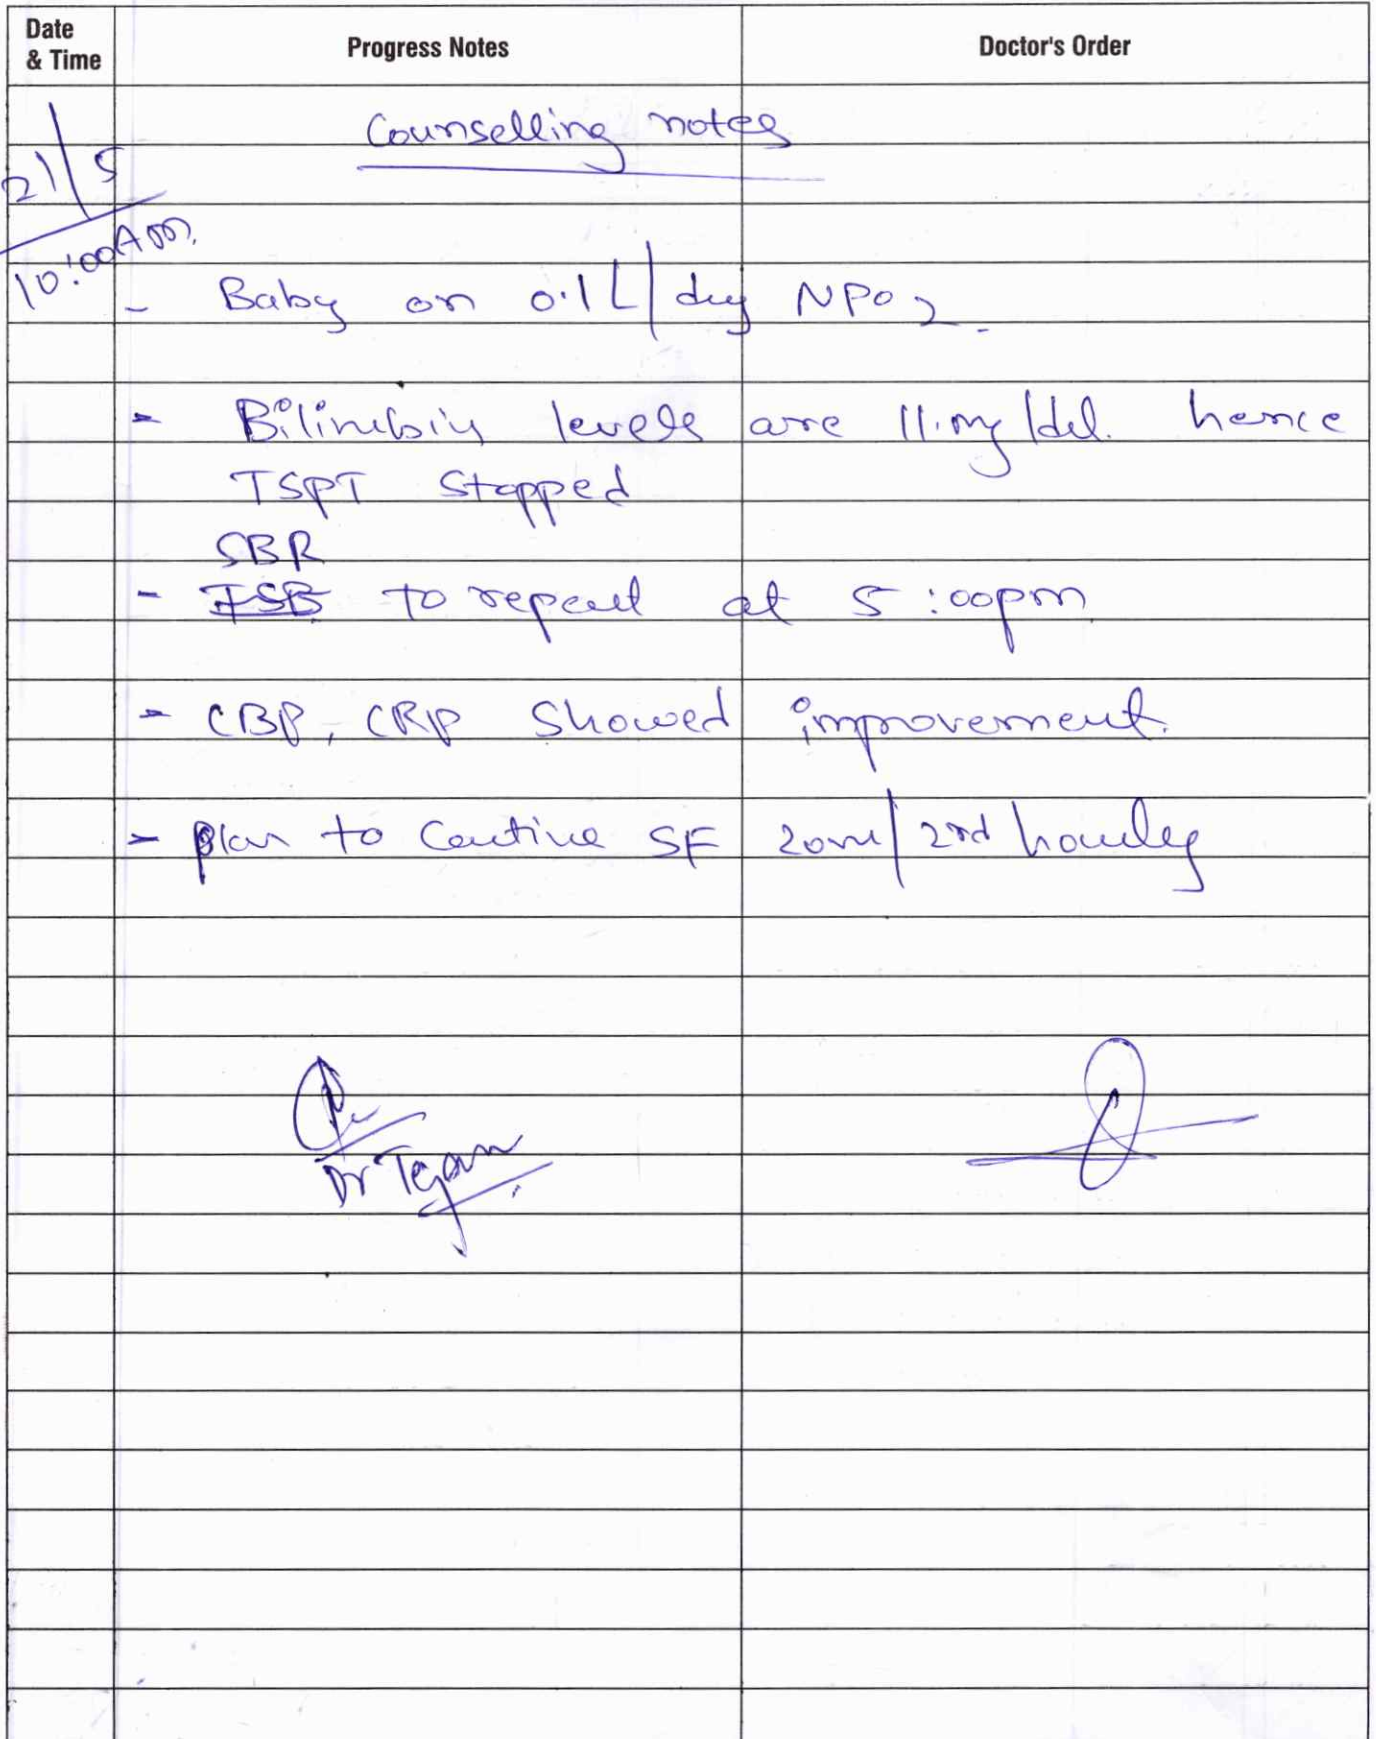 Date & Time Progress Notes Doctor's Order
Counselling notes
21/5
10:00AM.
- Baby on 0.1L/day NPO2.
- Bilirubin levels are 11.mg/dl. hence
TSPT Stopped
SBR
- TSB to repeat at 5:00pm
- CBP, CRP Showed improvement.
- plan to Continue SF 20ml/2nd hourly
Dr